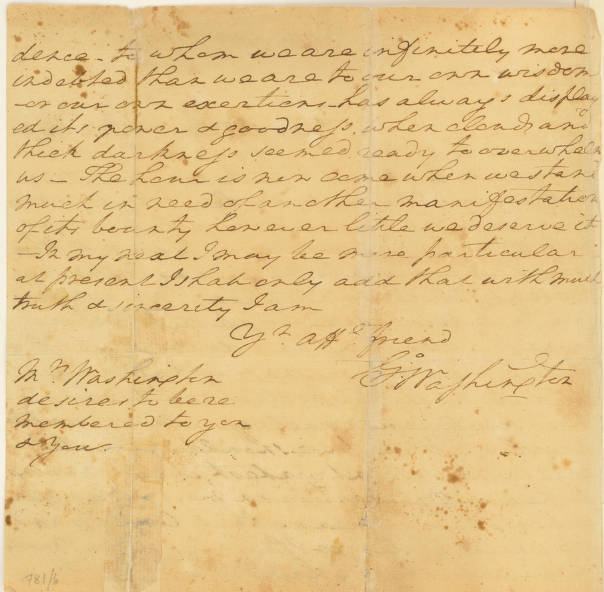 dence - to whom we are infinitely more
indebted than we are to our own wisdom
- or our own exertions - has always display
ed its power & goodness, when clouds and
thick darkness seemed ready to overwhelm
us - The hour is now come when we stand
much in need of another manifestation
of its bounty however little we deserve it
- In my next I may be more particular
at present I shall only add that with much
truth & sincerity I am
Yr. affe. friend
Go. Washington
Mrs. Washington
desires to be re
membered to you
& your
781/6